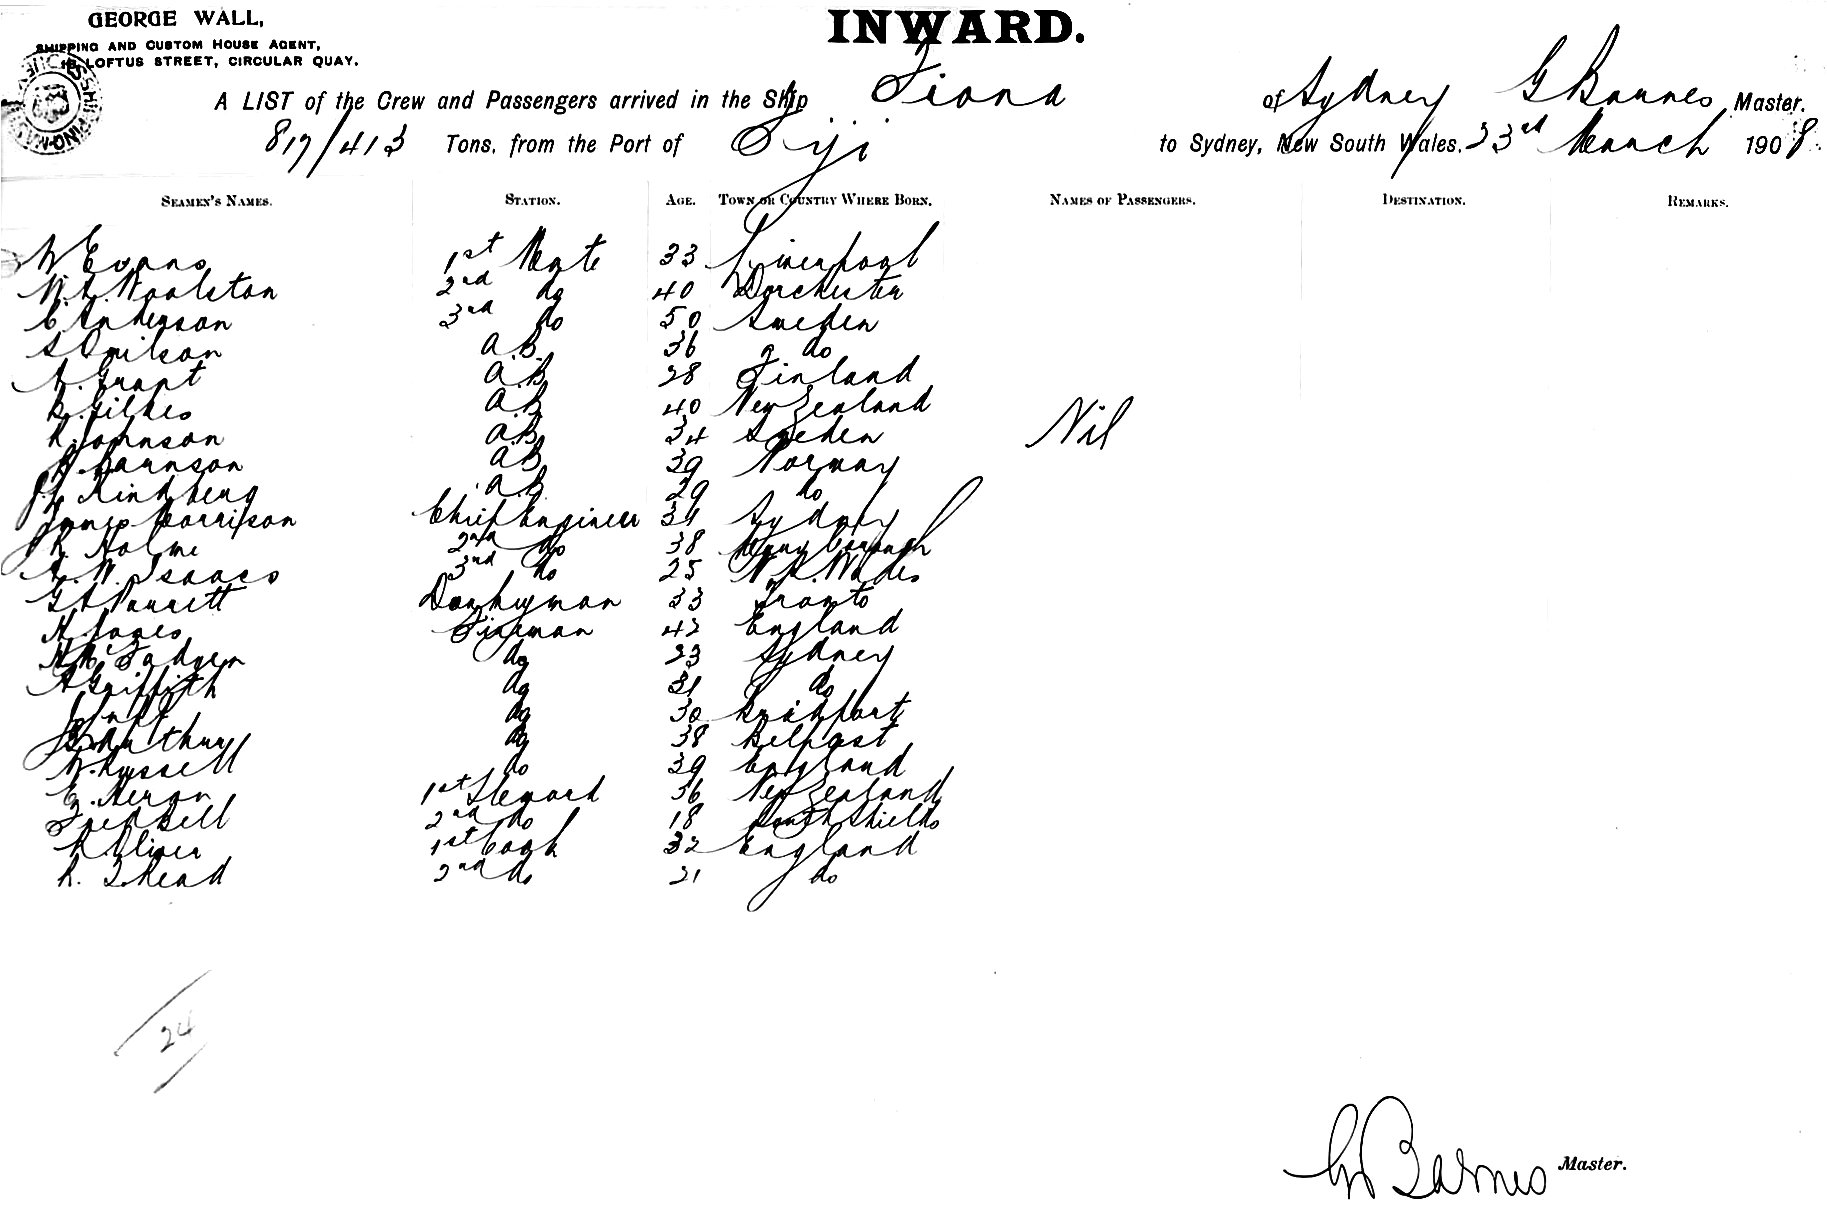 GEORGE WALL,
SHIPPING AND CUSTOM HOUSE AGENT,
LOFTUS STREET, CIRCULAR QUAY.
INWARD.
A LIST of the Crew and Passengers arrived in the Ship Fiona of Sydney G Barnes Master.
817/413 Tons, from the Port of Fiji to Sydney, New South Wales, 23rd March 1908.
SEAMEN'S NAMES. STATION. AGE. TOWN OR COUNTRY WHERE BORN. NAMES OF PASSENGERS. DESTINATION. REMARKS.
W Evans 1st Mate 33 Liverpool
Woolston 2nd do 40 Dorchester
C Anderson 3rd do 50 Sweden
A.B. 36 do
Grant A.B. 28 Finland
A.B. 40 New Zealand
Johnson A.B. 34 Sweden Nil
A.B. 39 Norway
A.B. 29 do
James Morrison Chief Engineer 34 Sydney
R Holme 2nd do 38 Maryborough
W. Isaacs 3rd do 25 N.S. Wales
Parrett Donkeyman 33 Toronto
Jones Fireman 42 England
do 23 Sydney
A Griffith do 31 do
do 30
McArthur do 38 Belfast
W. Russell do 39 England
1st Steward 36 New Zealand
Fred Bell 2nd do 18 South Shields
R Oliver 1st Cook 32 England
2nd do 21 do
24
G Barnes Master.